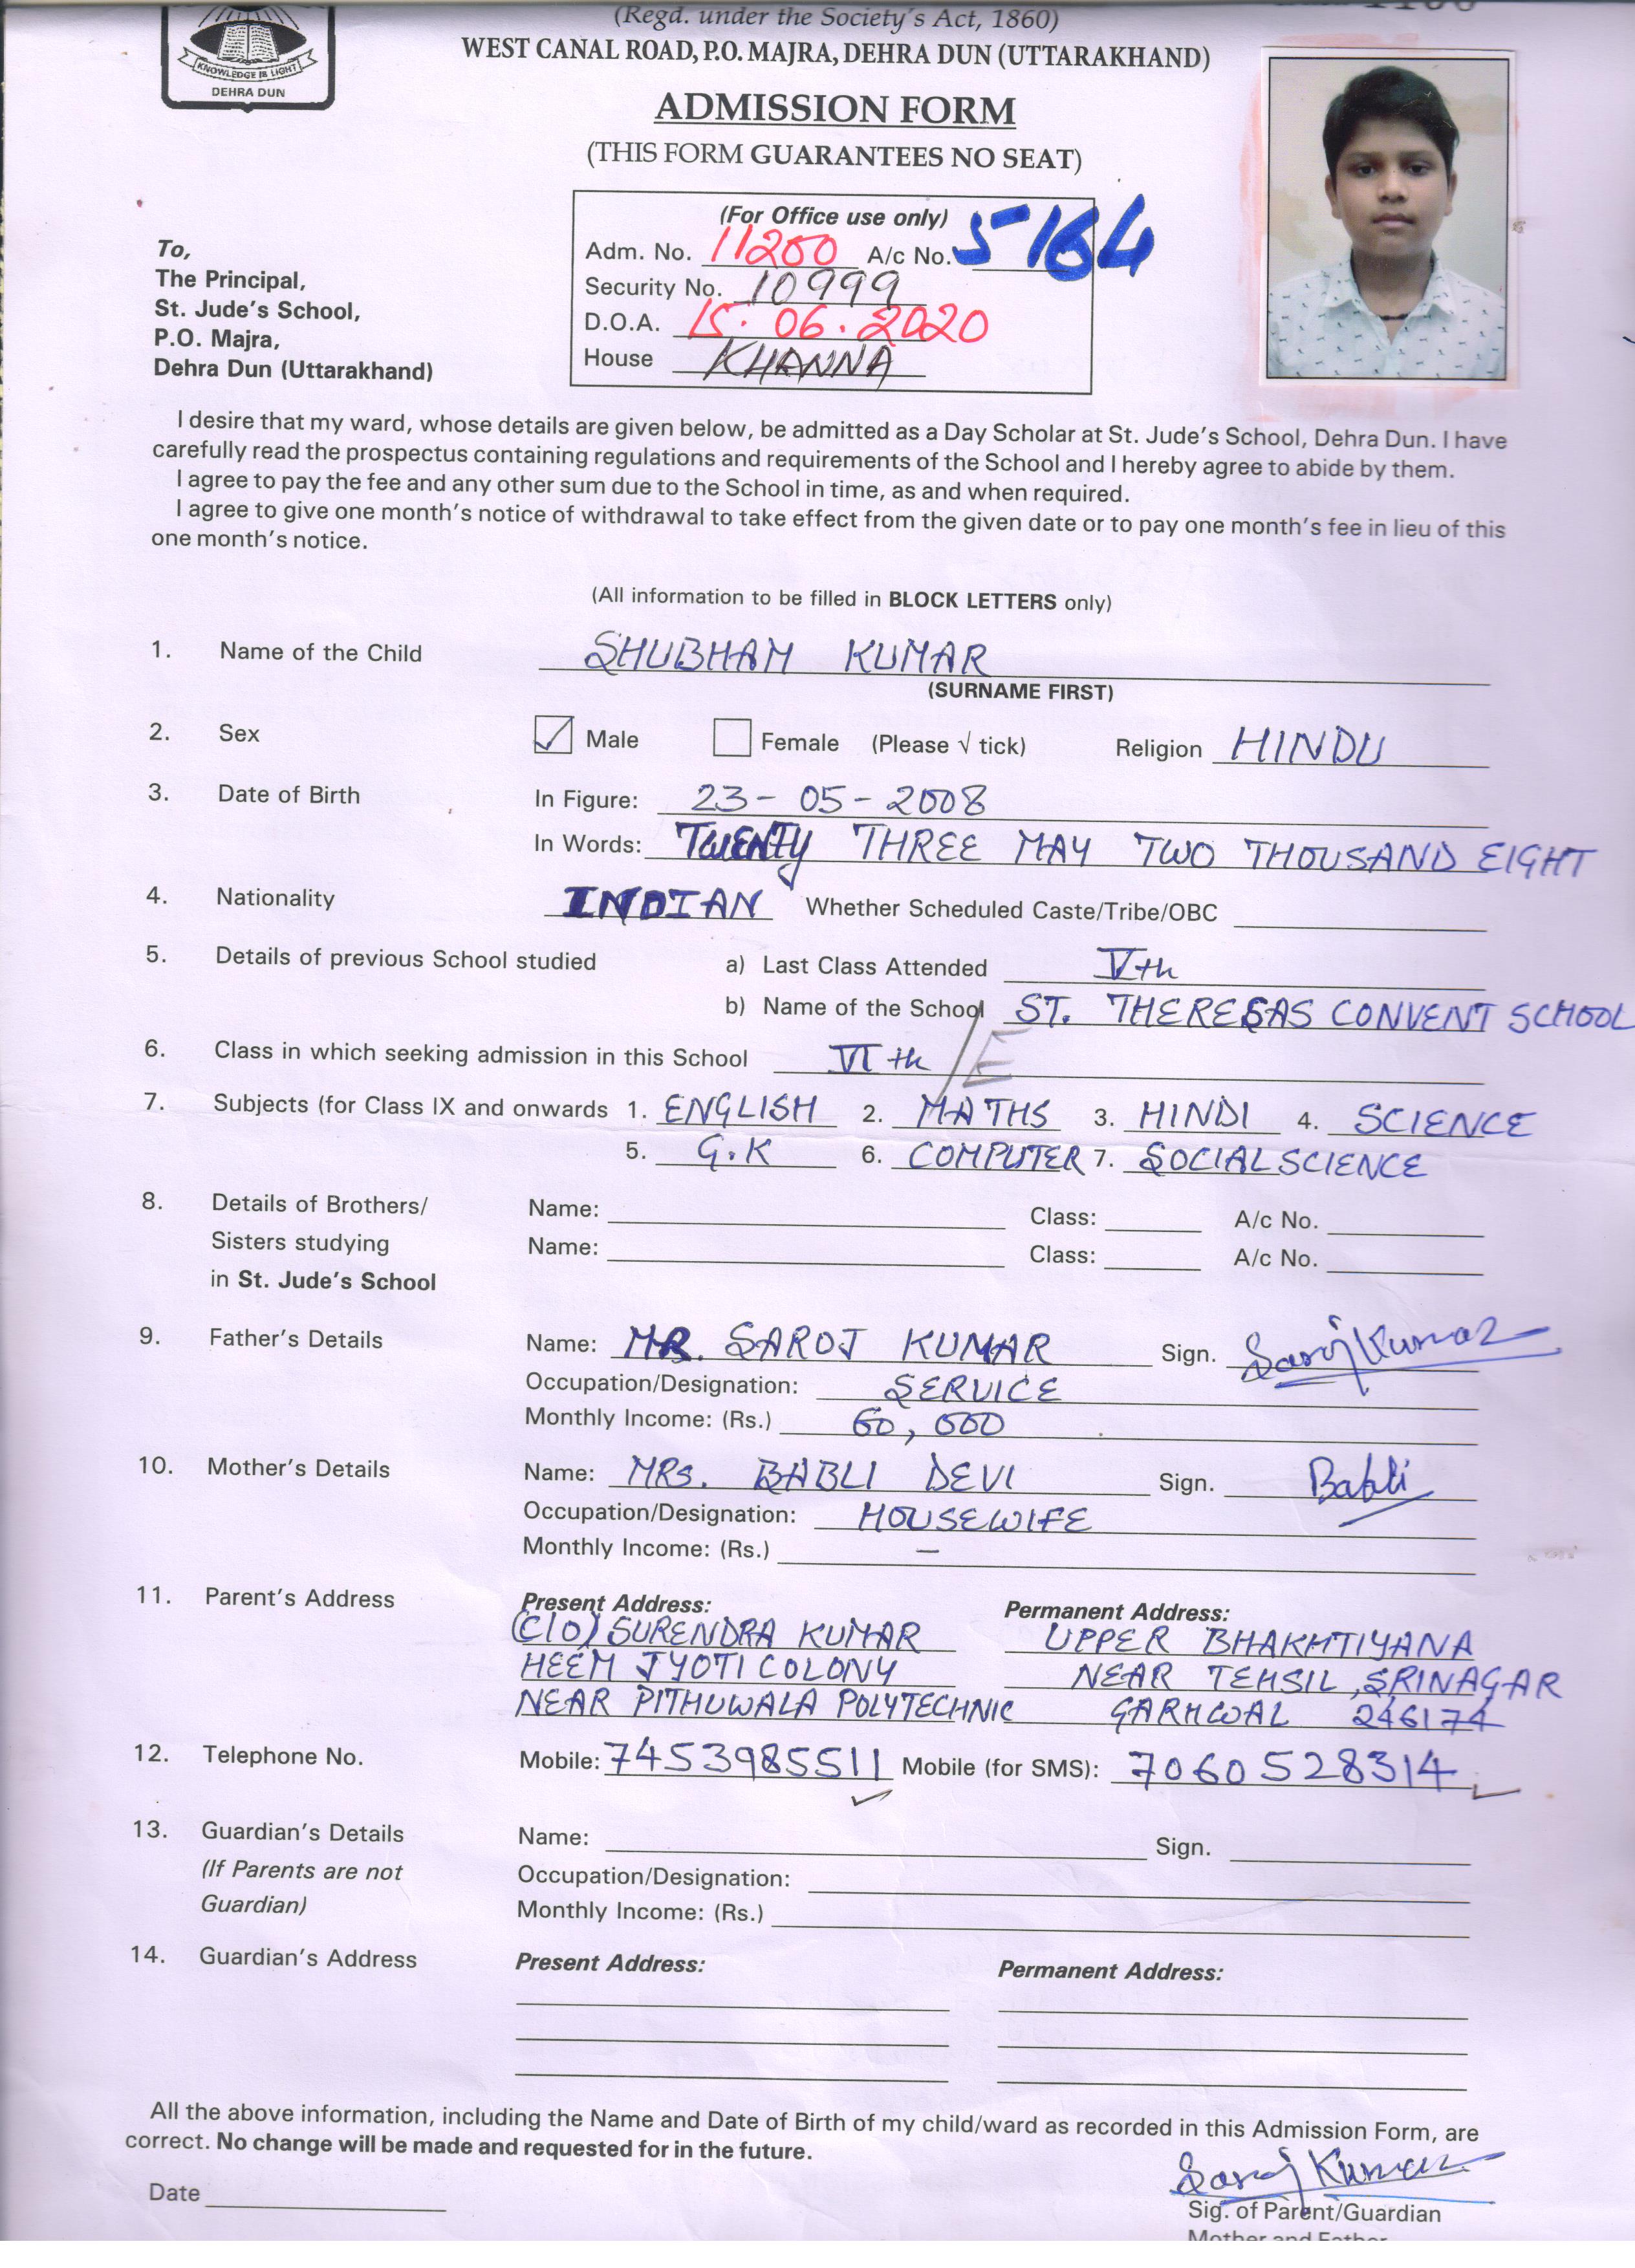 (Regd. under the Society's Act, 1860)
WEST CANAL ROAD, P.O. MAJRA, DEHRA DUN (UTTARAKHAND)
KNOWLEDGE IS LIGHT
DEHRA DUN
ADMISSION FORM
(THIS FORM GUARANTEES NO SEAT)
(For Office use only)
Adm. No. 11200 A/c No. 5164
Security No. 10999
D.O.A. 15.06.2020
House KHANNA
To,
The Principal,
St. Jude's School,
P.O. Majra,
Dehra Dun (Uttarakhand)
I desire that my ward, whose details are given below, be admitted as a Day Scholar at St. Jude's School, Dehra Dun. I have
carefully read the prospectus containing regulations and requirements of the School and I hereby agree to abide by them.
I agree to pay the fee and any other sum due to the School in time, as and when required.
I agree to give one month's notice of withdrawal to take effect from the given date or to pay one month's fee in lieu of this
one month's notice.
(All information to be filled in BLOCK LETTERS only)
1. Name of the Child SHUBHAM KUMAR
(SURNAME FIRST)
2. Sex Male Female (Please √ tick) Religion HINDU
3. Date of Birth In Figure: 23-05-2008
In Words: TWENTY THREE MAY TWO THOUSAND EIGHT
4. Nationality INDIAN Whether Scheduled Caste/Tribe/OBC
5. Details of previous School studied a) Last Class Attended Vth
b) Name of the School ST. THERESAS CONVENT SCHOOL
6. Class in which seeking admission in this School VIth /E
7. Subjects (for Class IX and onwards 1. ENGLISH 2. MATHS 3. HINDI 4. SCIENCE
5. G.K 6. COMPUTER 7. SOCIAL SCIENCE
8. Details of Brothers/ Name: Class: A/c No.
Sisters studying Name: Class: A/c No.
in St. Jude's School
9. Father's Details Name: MR. SAROJ KUMAR Sign. Saroj Kumar
Occupation/Designation: SERVICE
Monthly Income: (Rs.) 60,000
10. Mother's Details Name: MRS. BABLI DEVI Sign. Babli
Occupation/Designation: HOUSEWIFE
Monthly Income: (Rs.) –
11. Parent's Address Present Address: Permanent Address:
(C/O) SURENDRA KUMAR UPPER BHAKHTIYANA
HEEM JYOTI COLONY NEAR TEHSIL, SRINAGAR
NEAR PITHUWALA POLYTECHNIC GARHWAL 246174
12. Telephone No. Mobile: 7453985511 Mobile (for SMS): 7060528314
13. Guardian's Details Name: Sign.
(If Parents are not Occupation/Designation:
Guardian) Monthly Income: (Rs.)
14. Guardian's Address Present Address: Permanent Address:
All the above information, including the Name and Date of Birth of my child/ward as recorded in this Admission Form, are
correct. No change will be made and requested for in the future.
Saroj Kumar
Date
Sig. of Parent/Guardian
Mother and Father